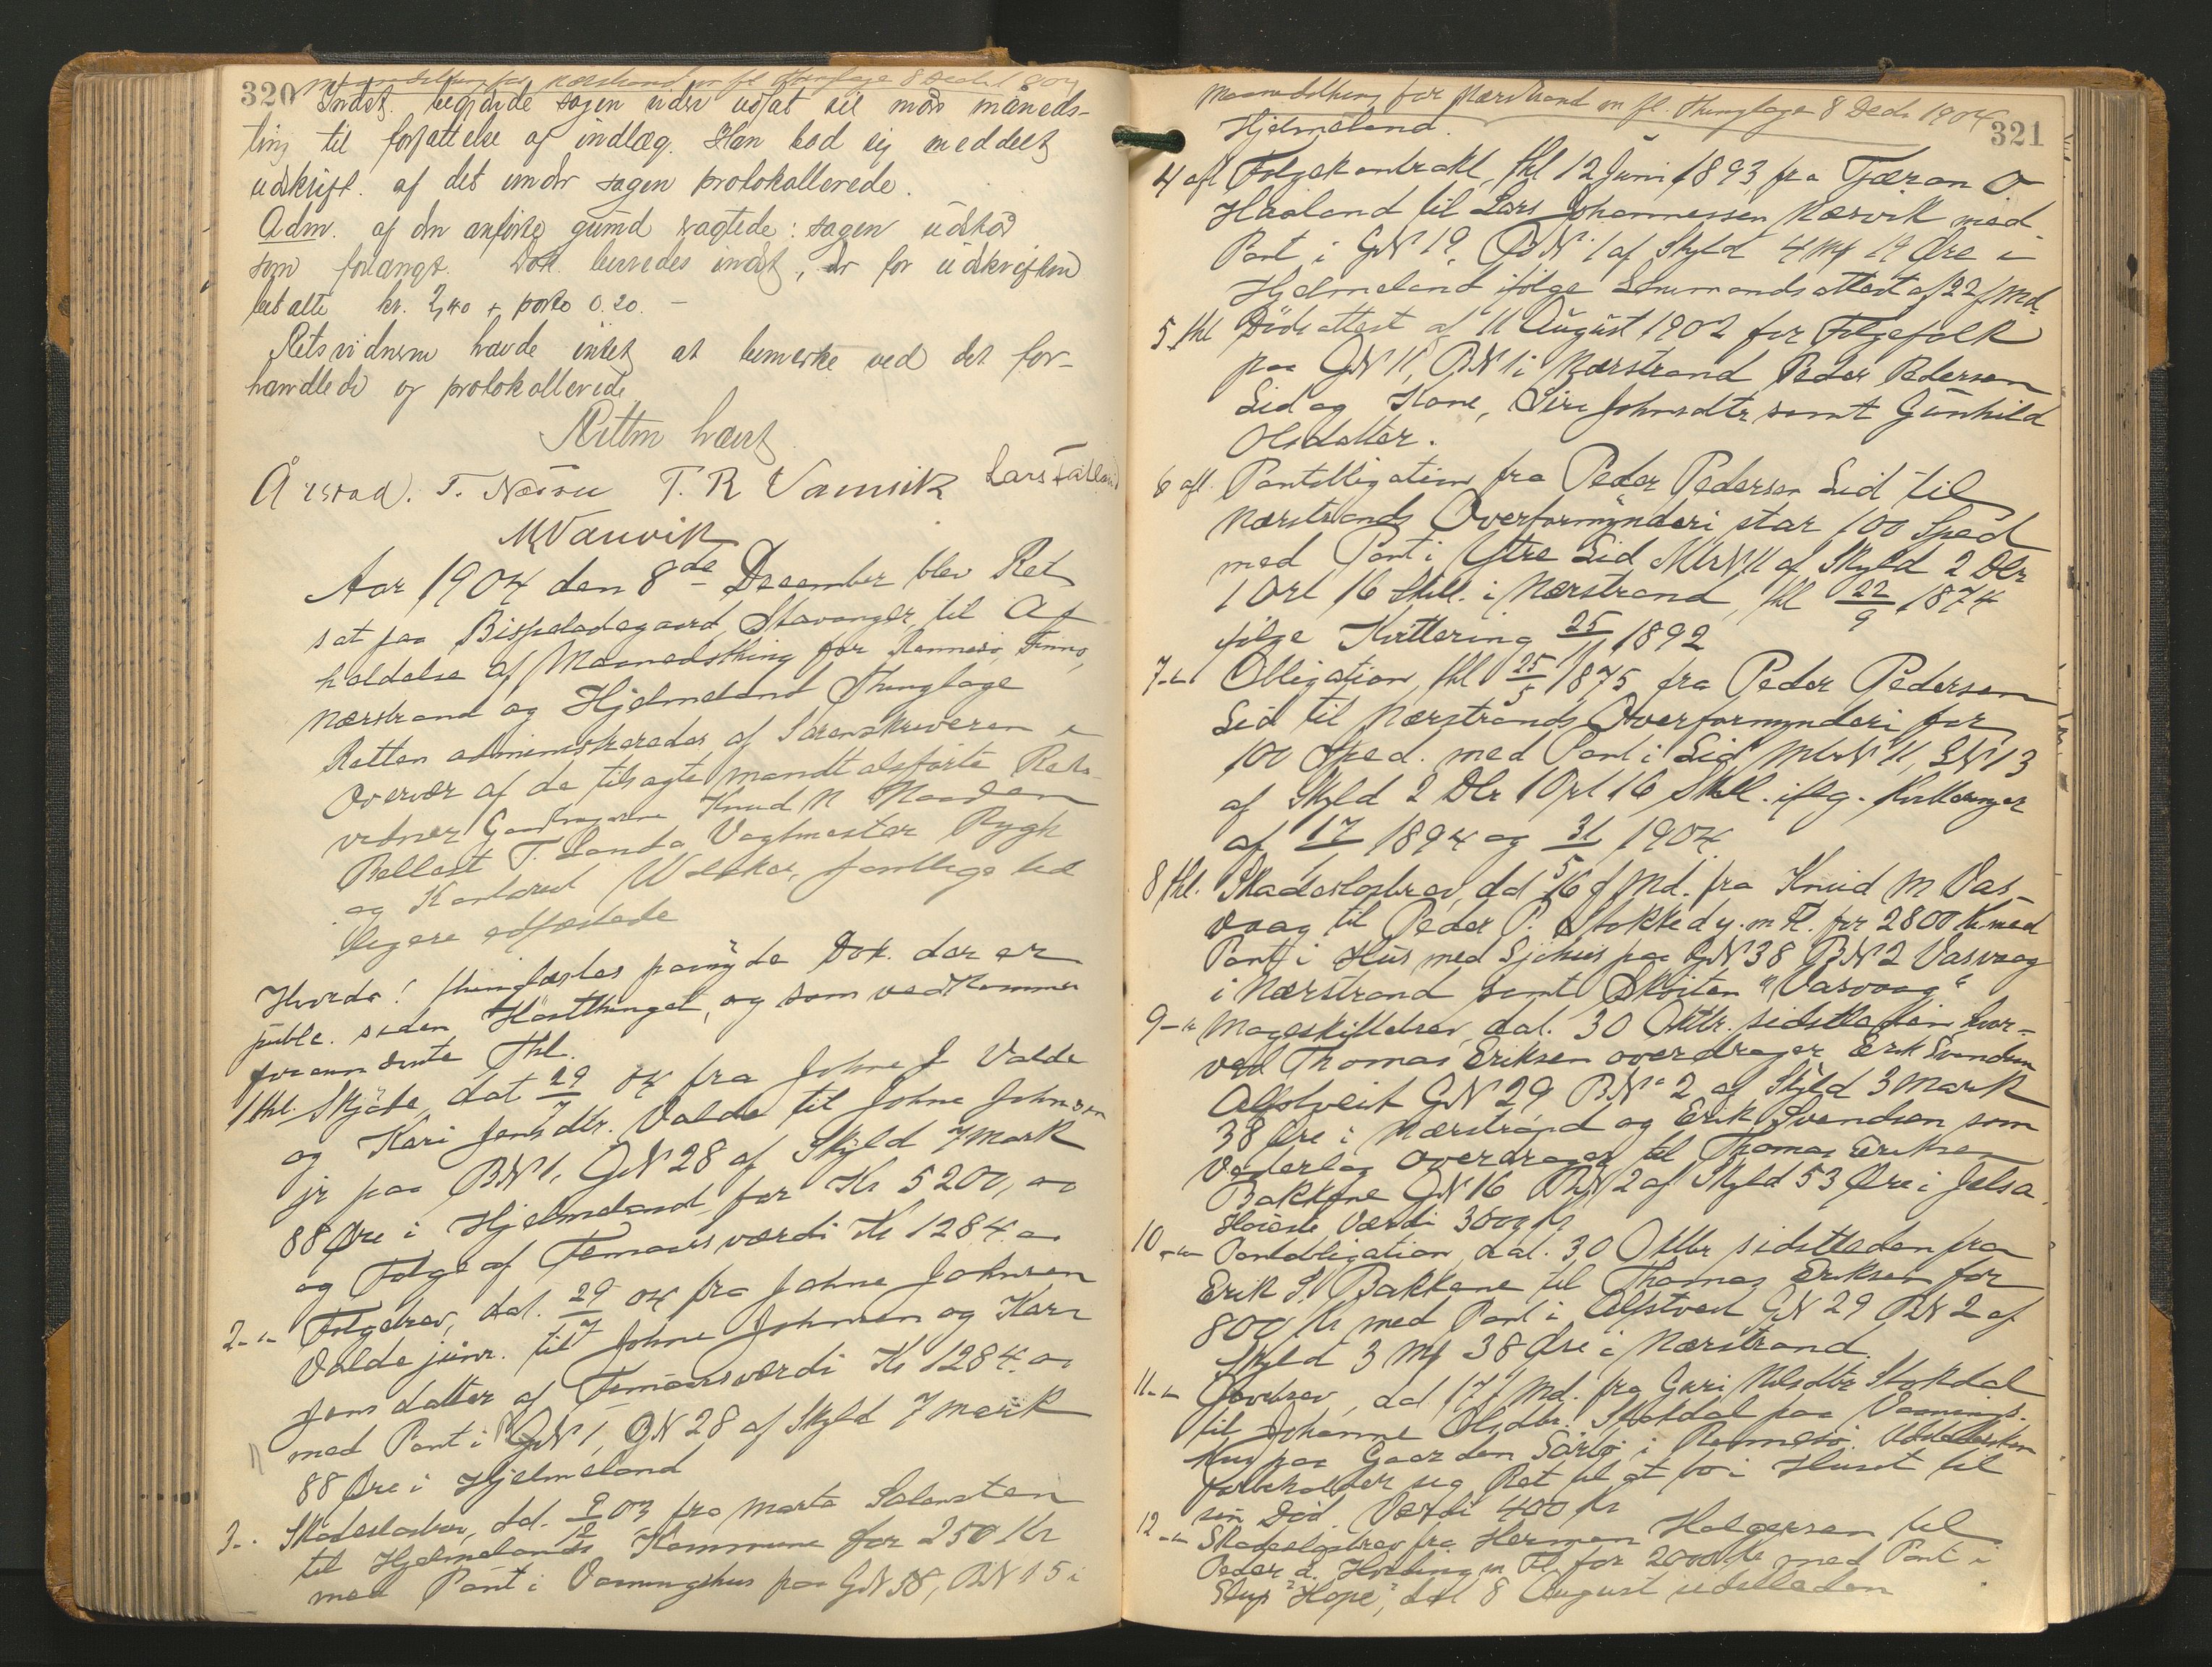 320
Maanedsthing for Nærstrand m fl. Thinglage 8 Decbr 1904
Indst. begjærde sagen videre udsat til næste måneds-
ting til forfattelse af indlæg. Han bad sig meddelt
udskrift af det under sagen protokollerede.
Adm. af den anførte grund vagtede: sagen udstår
som forlangt. Dok. leveredes indst, der for udskriften
betalte kr. 2,40 + porto 0.20. –
Retsvidnerne havde intet at bemærke ved det for-
handlede og protokollerede.
Retten hævet
Årstad. T. Næsse T. R Vannvik Lars
M Vanvik
Aar 1904 den 8de December blev Ret
sat paa Bispeladegaard Stavanger, til Af
holdelse af Maanedsthing for Rennesø, Finnø,
Nærstrand og Hjelmeland Thinglage
Retten administreredes af Sorenskriveren i
Overvær af de tilsagte mandtalsførte Rets-
vidner Gaardbrugerne Knud N
T. Landa Vagtmester Rygh
og Kontorist samtlige tid
ligere edfæstede
Hvorda! thinglæstes paany de Dok. der er
publ. siden Høstthinget, og som vedkommer
forannævnte Thl.
1 thl. Skjøde, dat 29/7 04 fra Johne J Valde
og Kari Jensdtr. Valde til Johne Johnsen
jr paa BN 1, GN 28 af Skyld 7 Mark
88 Øre i Hjelmeland for Kr 5200, oo
og Følge af Femaarsværdi Kr 1284. oo
2 – " – Følgebrev, dat. 29/7 04 fra Johne Johnsen
Valde junr. til Johne Johnsen og Kari
Jensdatter af Femaarsværdi Kr 1284. oo
med Pant i GN 1, GN 28 af Skyld 7 Mark
88 Øre i Hjelmeland
3 – " Skadesløsbrev, dd. 9/12 03 fra Marta
til Hjelmelands Kommune for 250 Kr
med Pant i Vaaningshus paa GN 58, BN 15 i
Maanedsthing for Nærstrand m fl. Thinglage 8 Decbr 1904
321
Hjelmeland.
4 afl Følgekontrakt, thl 12 Juni 1893 fra Tjæran O
Haaland til Lars Johannessen Nærvik med
Pant i GN 19, BN 1 af Skyld 4 Mk 19 Øre i
Hjelmeland ifølge Lensmandsattest af 22 f Md.
5 thl Dødsattest af 11 August 1902 for Følgefolk
paa GN 11, BN 1 i Nærstrand Peder Pedersen
Lid og Kone, Siri Johnsdtr samt Gunhild
Olsdatter.
6 afl. Pantobligation fra Peder Pedersen Lid til
Nærstrands Overformynderi stor 100 Sped
med Pant i Ytre Lid MtrN 11 af Skyld 2 Dlr
1 Ort 16 Skill. i Nærstrand thl 22/9 1874
følge Kvittering 25/11 1892
7 – " – Obligation, thl 25/5 1875 fra Peder Pedersen
Lid til Nærstrands Overformynderi for
100 Sped. med Pant i Lid MtrN 11, LN 13
af Skyld 2 Dlr 1 Ort 16 Skill. iflg. Kvitteringer
af 17/1 1894 og 31/5 1904.
8 thl. Skadesløsbrev, dd 16 f Md. fra Knud M Vas-
vaag til Peder P. Stokkedy. m fl. for 2800 Kr med
Pant i Hus med Sjøhus paa GN 38 BN 2 Vasvaag
i Nærstrand samt Skøiten "Vasvaag"
9 – " Mageskiftebrev, dat. 30 Oktbr. sidstleden hvor-
ved Thomas Eriksen overdrager Erik Svendsen
Alfstveit GN 29 BN 2 af Skyld 3 Mark
38 Øre i Nærstrand og Erik Svendsen som
Vederlag overdrager til Thomas Eriksen
Bakkene GN 16 BN 2 af Skyld 53 Øre i Jelsa.
Høieste Værdi 3600 Kr
10 – " – Pantobligation, dat. 30 Oktbr sidstleden fra
Erik S. Bakkene til Thomas Eriksen for
800 Kr med Pant i Alfstveit GN 29 BN 2 af
Skyld 3 Mk 38 Øre i Nærstrand.
11 – " – Gavebrev, dd 17 f Md. fra Guri Nilsdtr Stokdal
til Johanne Olsdtr. Stokdal paa Vaanings-
Hus paa Gaarden Sørbø i Rennesø. Udstedersken
forbeholder sig Ret til at bo i Huset til
sin Død. Værdi 400 Kr
12 – " – Skadesløsbrev fra Herman Holgersen til
Peder d. m fl for 2000 Kr med Pant i
Slup "Hope", dat 8 August sidstleden